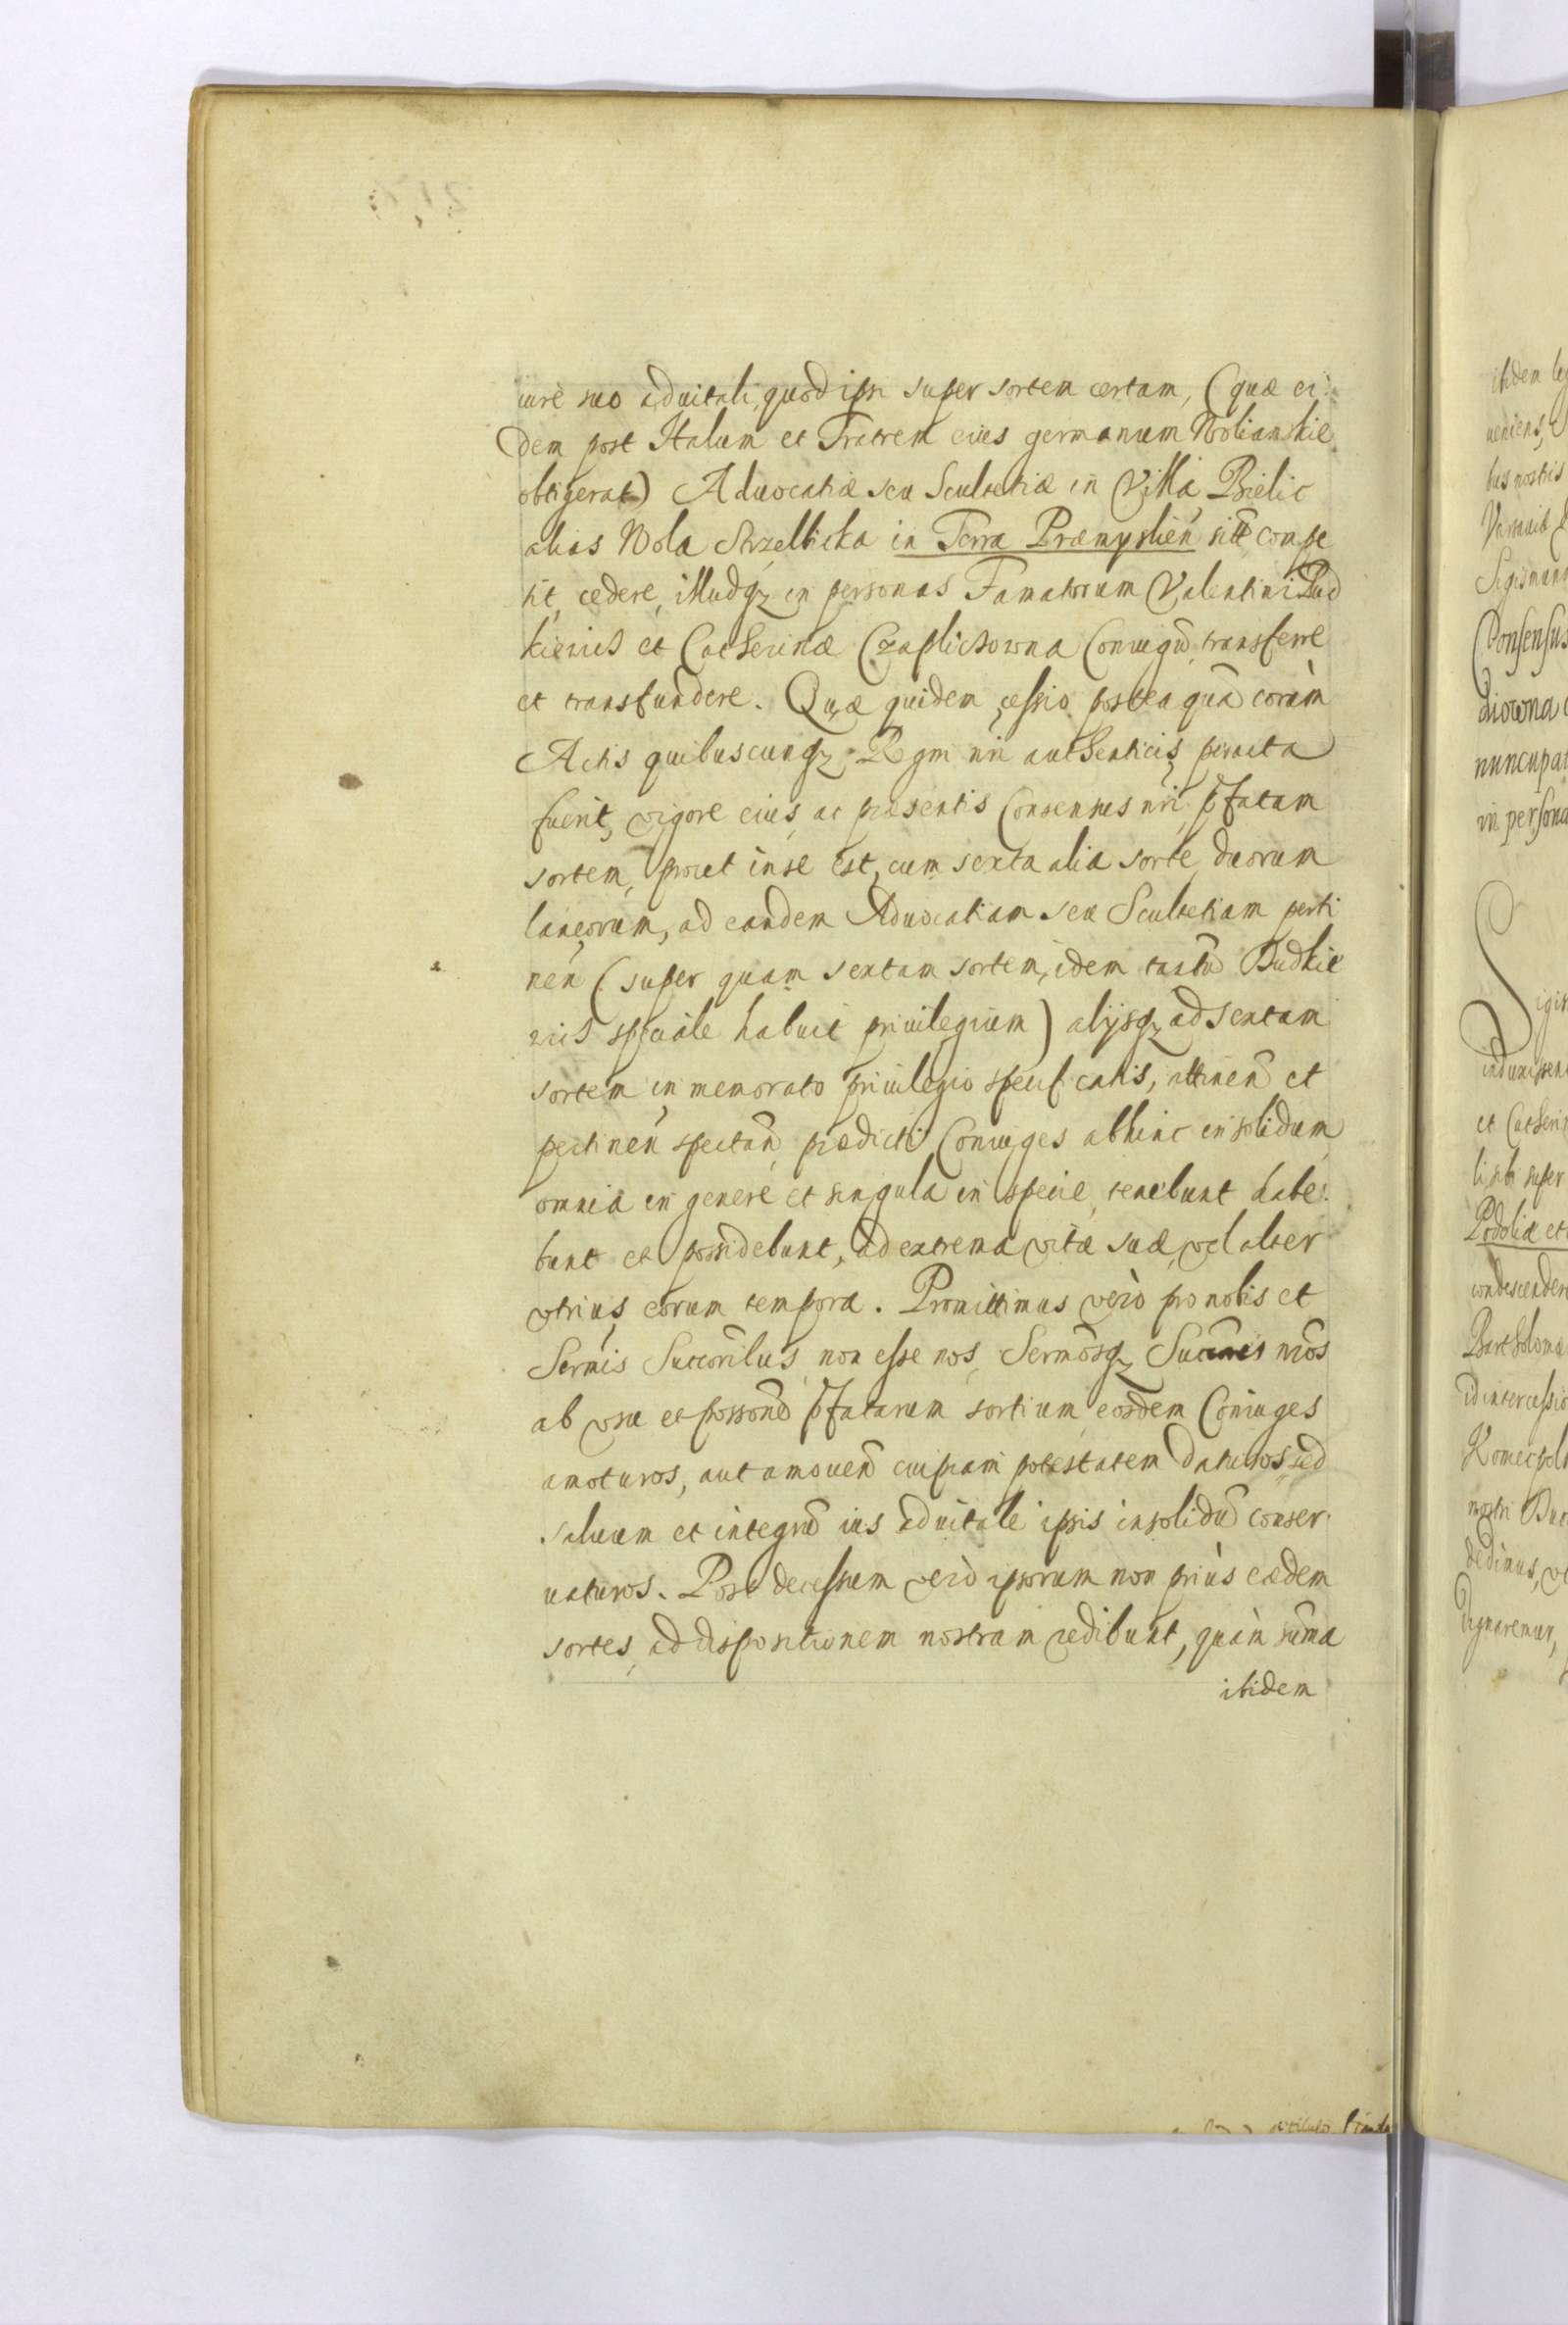 iure suo aduitali, quod ipsi super sortem certam, (quæ ei
dem post Italum et Fratrem eius germanum Wolianskie
obtigerat) Aduocatiæ seu Scultetiæ in Villa Bielic
alias Wola Strzelbicka in Terra Præmyslień sitt compe
tit, cedere, illudq in personas Famatorum Valentini Bud
kievicz et Catherinæ Czaplichowna Coniugũ, transferre
et transfundere. Quæ quidem cessio postea quã coràm
Actis quibuscunq Regni nri authenticis, peracta
fuerit, vigore eius, ac præsentis Consensus nri, pfatam
sortem, prout in se est, cum sexta alia sorte duorum
laneorum, ad eandem Aduocatiam seu Scultetiam perti
nen (super quam sextam sortem, idem Budkie
vicz speciale habuit priuilegium) alijsq ad sextam
sortem in memorato priuilegio specificatis, attinen et
pertinen spectan, prædicti Coniuges abhinc in solidum
omnia in genere et singula in specie, tenebunt habe
bunt et possidebunt, ad extrema vitæ suæ, vel alter
vtrius eorum tempora. Promittimus verò pro nobis et
Sermis Successoribus, non esse nos, Sermosq nros
ab vsu et possone pfatarum sortium, eosdem Coniuges
amoturos, aut amouen cuipiam potestatem daturos, sed
saluum et integrũ ius aduitale ipsis in solidũ conser
uaturos. Post decessum verò ipsorum non priùs eædem
sortes, ad dispositionem nostram redibunt, quàm sũma
ibidem
itidem
ueniens,
bus nostris
Consensus
diowna
nuncupat
in persona
et Catherin
li sibi super
Podoliæ et
condescendere
Bartholomæ
id intercessio
nostri
dedimus,
dignaremur,